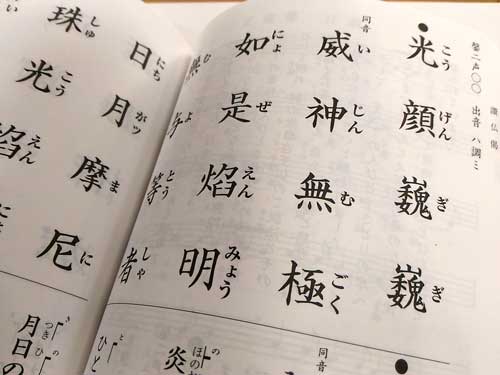 讃仏偈
磬二声〇〇 出音 ハ調ミ
●光顔巍巍
こうげんぎぎ
同音
威神無極
いじんむごく
如是焔明
にょぜえんみょう
無与等者
むよとうしゃ
日月摩尼
にちがッまに
珠光焔
しゅこうえん
●
同音
炎
ほの
ひと
月日の
つきひ